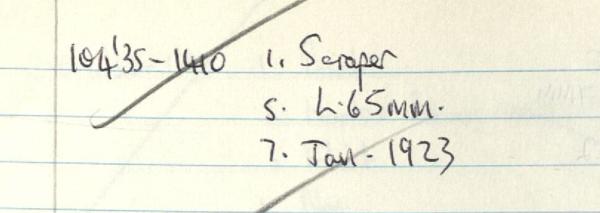 104'35-1410 1. Scraper
5. L.65mm.
7. Jan - 1923